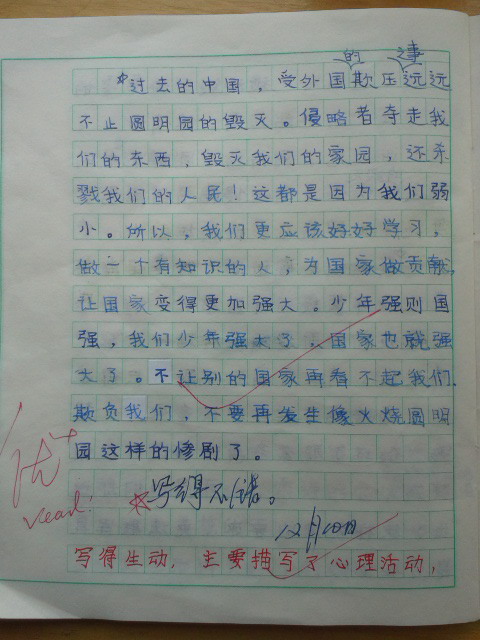 的 之事
过去的中国，受外国欺压远远
不止圆明园的毁灭。侵略者夺走我
们的东西，毁灭我们的家园，还杀
戮我们的人民！这都是因为我们弱
小。所以，我们更应该好好学习，
做一个有知识的人，为国家做贡献，
让国家变得更加强大。少年强则国
强，我们少年强大了，国家也就强
大了。不让别的国家再看不起我们，
欺负我们，不要再发生像火烧圆明
园这样的惨剧了。
优+
read!
写得不错。
12月10日
写得生动，主要描写了心理活动，